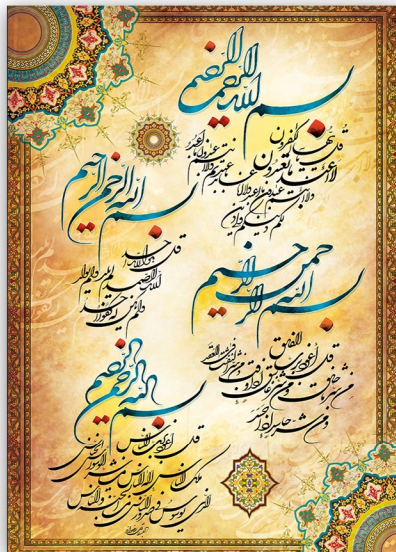 بسم الله الرحمن الرحيم
قل يا أيها الكافرون
لا أعبد ما تعبدون ولا أنتم عابدون ما أعبد
ولا أنا عابد ما عبدتم ولا أنتم عابدون ما أعبد
لكم دينكم ولي دين
بسم الله الرحمن الرحيم
قل هو الله أحد
الله الصمد لم يلد ولم يولد
ولم يكن له كفوا أحد
بسم الله الرحمن الرحيم
قل أعوذ برب الفلق
من شر ما خلق ومن شر غاسق إذا وقب ومن شر النفاثات في العقد
ومن شر حاسد إذا حسد
بسم الله الرحمن الرحيم
قل أعوذ برب الناس
ملك الناس إله الناس من شر الوسواس الخناس
الذي يوسوس في صدور الناس من الجنة والناس